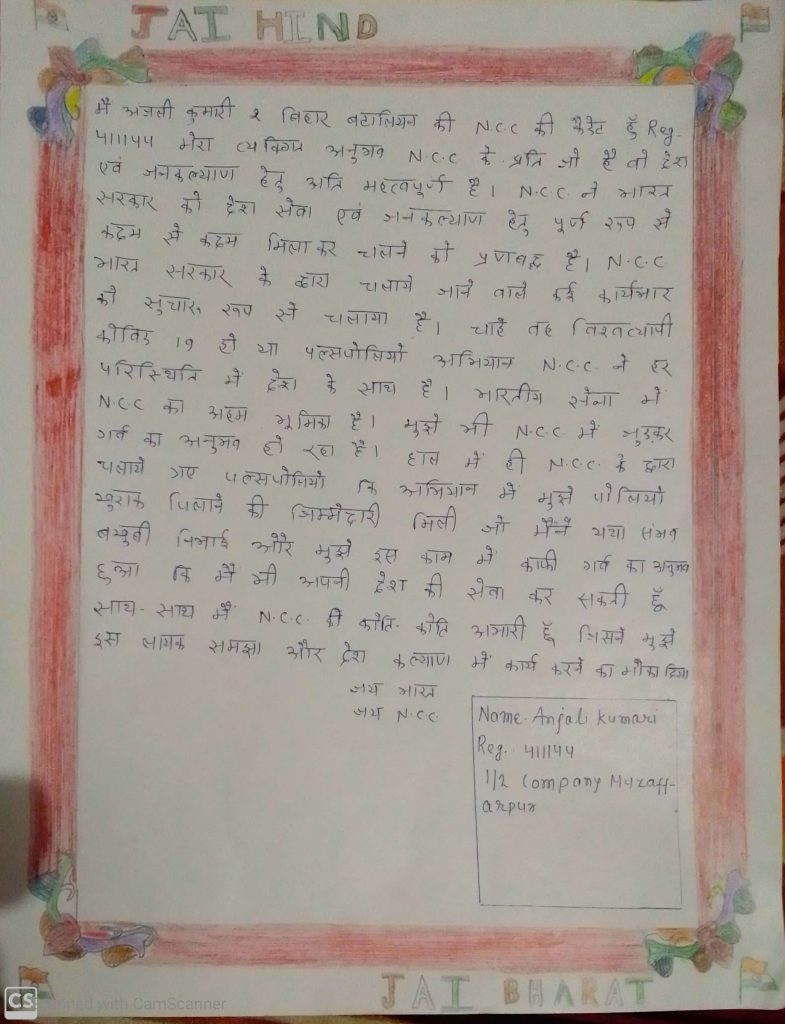 JAI HIND
मैं अंजली कुमारी 2 बिहार बटालियन की N.C.C की कैडेट हूँ Reg-
411144 मेरा व्यक्तिगत अनुभव N.C.C के प्रति जो है वो देश
एवं जनकल्याण हेतु अति महत्वपूर्ण है। N.C.C. ने भारत
सरकार को देश सेवा एवं जनकल्याण हेतु पूर्ण रूप से
कदम से कदम मिलाकर चलने को प्रणबद्ध है। N.C.C
भारत सरकार के द्वारा चलाये जाने वाले कई कार्यभार
को सुचारू रूप से चलाया है। चाहे वह विश्वव्यापी
कोविड 19 हो या पल्सपोलियो अभियान N.C.C. ने हर
परिस्थिति में देश के साथ है। भारतीय सेना में
N.C.C का अहम भूमिका है। मुझे भी N.C.C में जुड़कर
गर्व का अनुभव हो रहा है। हाल में ही N.C.C. के द्वारा
चलाये गए पल्सपोलियो कि अभियान में मुझे पोलियो
खुराक पिलाने की जिम्मेदारी मिली जो मैंने यथा संभव
बखुबी निभाई और मुझे इस काम में काफी गर्व का अनुभव
हुआ कि मैं भी अपनी देश की सेवा कर सकती हूँ
साथ-साथ मैं N.C.C. की कोटि-कोटि अभारी हूँ जिसने मुझे
इस लायक समझा और देश कल्याण में कार्य करने का मौका दिया
जय भारत
जय N.C.C.
Name- Anjali Kumari
Reg. 411144
1/2 Company Muzaff-
arpur
JAI BHARAT
CS
with CamScanner